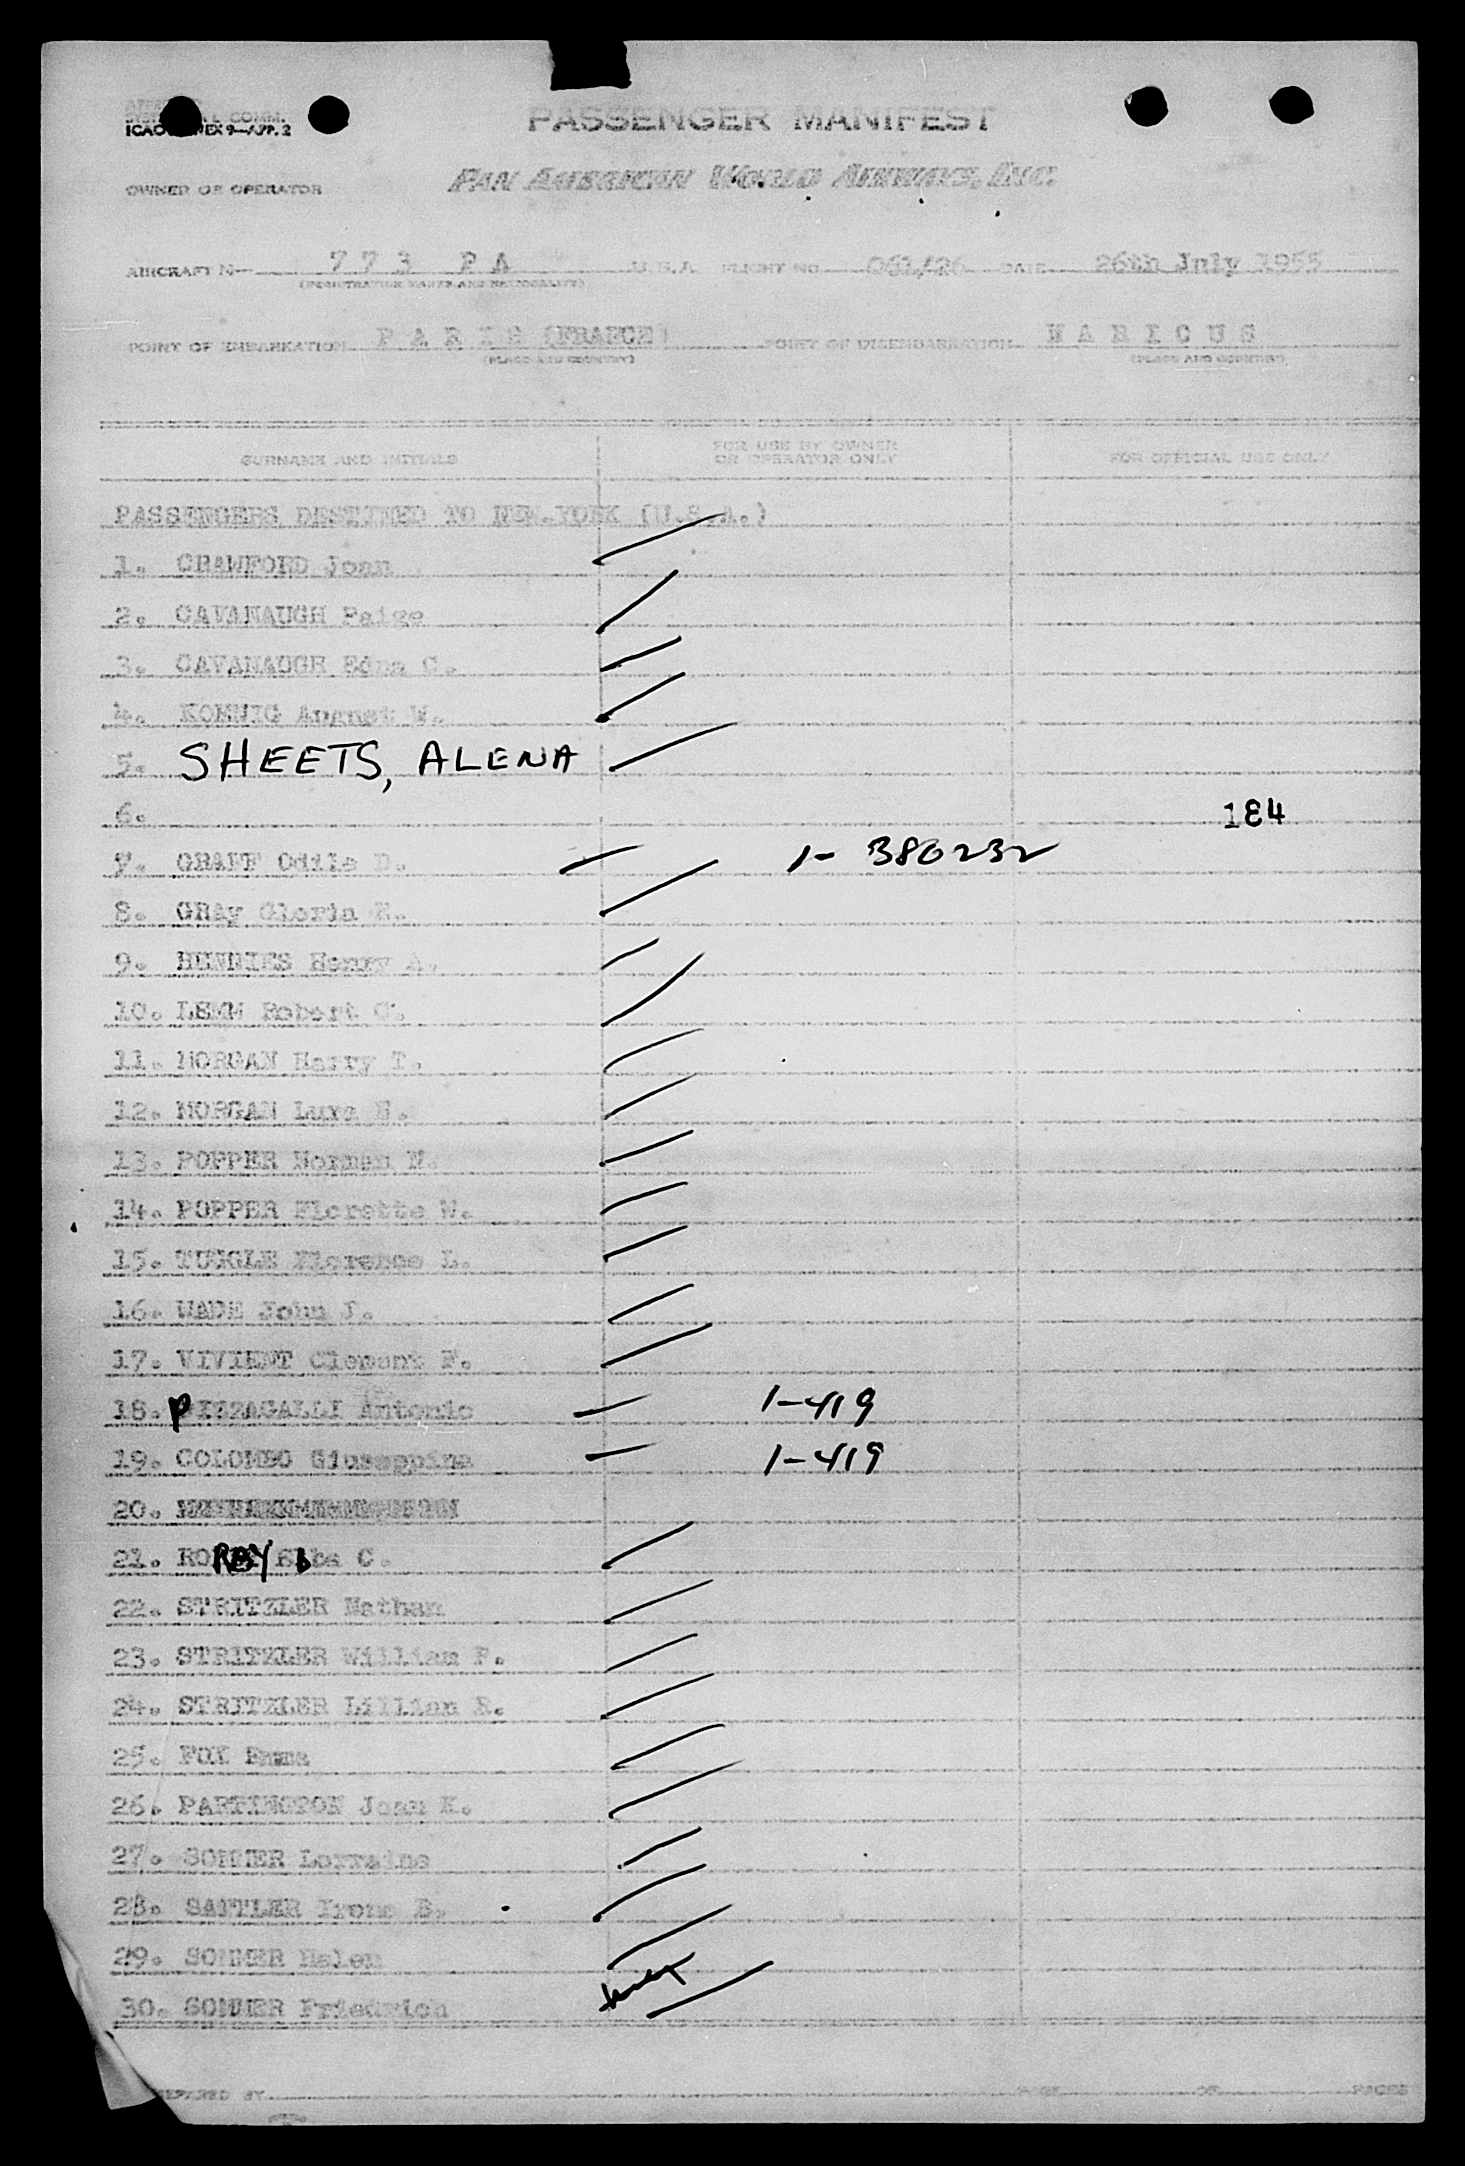 ICAO ANNEX 9—APP. 2
PASSENGER MANIFEST
OWNER OR OPERATOR PAN AMERICAN WORLD AIRWAYS, INC.
AIRCRAFT N— 773 PA U.S.A. FLIGHT NO. 061/26 DATE 26th July 1955
(REGISTRATION MARKS AND NATIONALITY)
POINT OF EMBARKATION PARIS (FRANCE) POINT OF DISEMBARKATION VARIOUS
(PLACE AND COUNTRY) (PLACE AND COUNTRY)
SURNAME AND INITIALS FOR USE BY OWNER OR OPERATOR ONLY FOR OFFICIAL USE ONLY
PASSENGERS DESTINED TO NEW.YORK (U.S.A.)
1. CRAWFORD Joan
2. CAVANAUGH Paige
3. CAVANAUGH Edna C.
4. KOENIG August W.
5. SHEETS, ALENA
6. 184
7. GRAFF Odile D. 1- 380232
8. GRAy Gloria E.
9. HENNIES Henry A.
10. LEMM Robert C.
11. MORGAN Harry T.
12. MORGAN Lura E.
13. POPPER Norman N.
14. POPPER Florette W.
15. TUNGLE Florence L.
16. WADE John J.
17. VIVIENT Clement F.
18. PIZZAGALLI Antonio 1-419
19. COLOMBO Giuseppina 1-419
20.
21. RORBY Elba C.
22. STRITZLER Nathan
23. STRITZLER William F.
24. STRITZLER Lillian R.
25. FOX Emma
26. PARTINGTON Joan K.
27. SOMMER Lorraine
28. SATTLER Irene B.
29. SOMMER Helen
30. SOMMER Friedrich
PREPARED BY PAGE OF PAGES